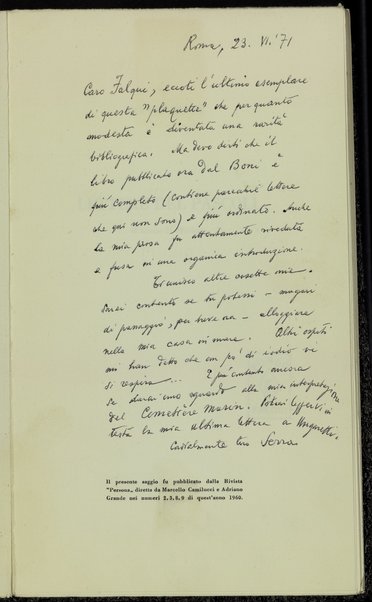 Roma, 23. VI. '71
Caro Falqui, eccoti l'ultimo esemplare
di questa "plaquette" che per quanto
modesta è diventata una rarità
bibliografica. Ma devo dirti che il
libro pubblicato ora dal Boni è
più completo (contiene parecchie lettere
che qui non sono) e più ordinato. Anche
la mia prosa fu attentamente riveduta
e fusa in una organica introduzione.
Ti unisco altre cosette mie.
Sarei contento se tu potessi – magari
di passaggio, per breve ora – alloggiare
nella mia casa in mare. Altri ospiti
mi han detto che un po' di iodio vi
si respira... E più contento ancora
se darai uno sguardo alla mia interpretazione
del Cimetière Marin. Potrai leggervi, in
testa la mia ultima lettera a Ungaretti.
Cordialmente tuo Serra
Il presente saggio fu pubblicato dalla Rivista
"Persona„ diretta da Marcello Camilucci e Adriano
Grande nei numeri 2,3,8,9 di quest'anno 1960.